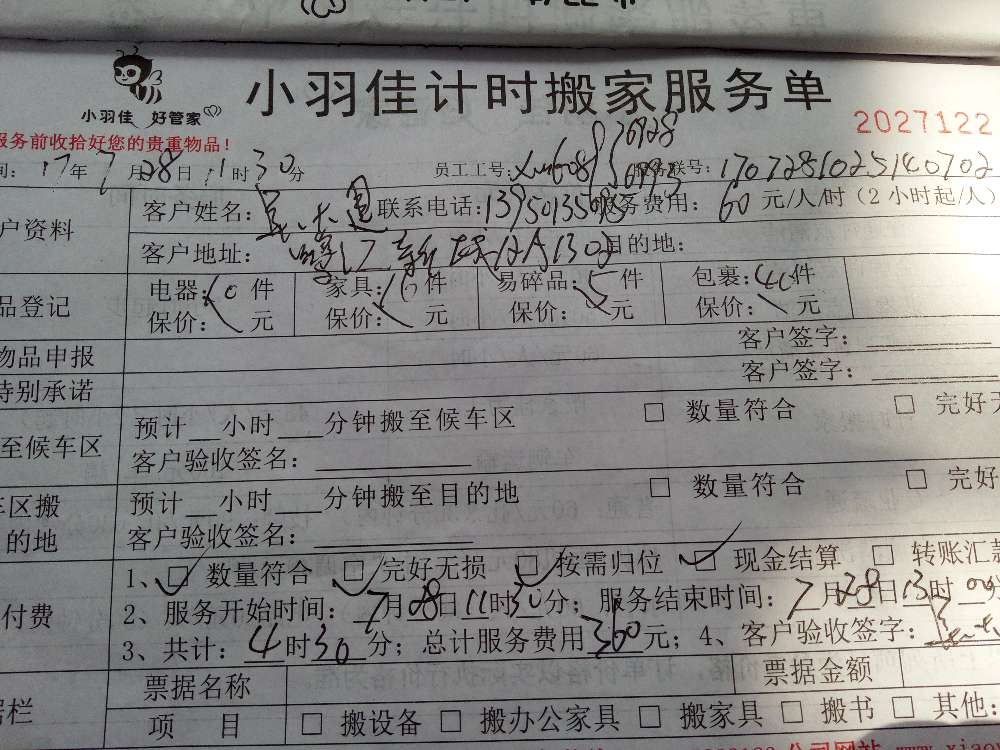 小羽佳 好管家
小羽佳计时搬家服务单
2027122
服务前收拾好您的贵重物品！
间: 17年7月28日11时30分 员工工号: 务联号: 1707281025140702
户资料 客户姓名: 联系电话: 务费用: 60元/人/时（2小时起/人）
客户地址: 目的地:
品登记 电器: 10件 家具: 10件 易碎品: 5件 包裹: 40件
保价: 元 保价: 元 保价: 元 保价:
物品申报 客户签字:
特别承诺 客户签字:
至候车区 预计__小时___分钟搬至候车区 □ 数量符合 □ 完好无
客户验收签名:
车区搬 预计__小时___分钟搬至目的地 □ 数量符合 □ 完好
的地 客户验收签名:
付费 1、□ 数量符合 □ 完好无损 □ 按需归位 □ 现金结算 □ 转账汇款
2、服务开始时间: 7月28日11时30分; 服务结束时间: 7月28日13时
3、共计: 4时30分; 总计服务费用360元; 4、客户验收签字:
据栏 票据名称 票据金额
项 目 □ 搬设备 □ 搬办公家具 □ 搬家具 □ 搬书 □ 其他:
公司网站